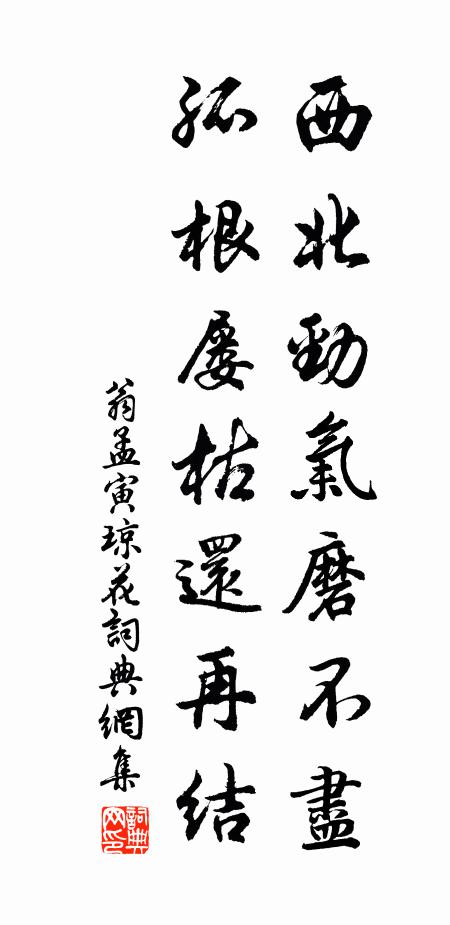 西北勁氣磨不盡
孤根屢枯還再結
翁孟寅琼花詞典網集
詞典
网印